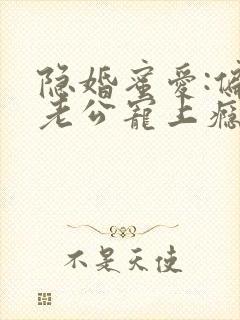 隐婚蜜爱:偏
老公宠上瘾
不是天使